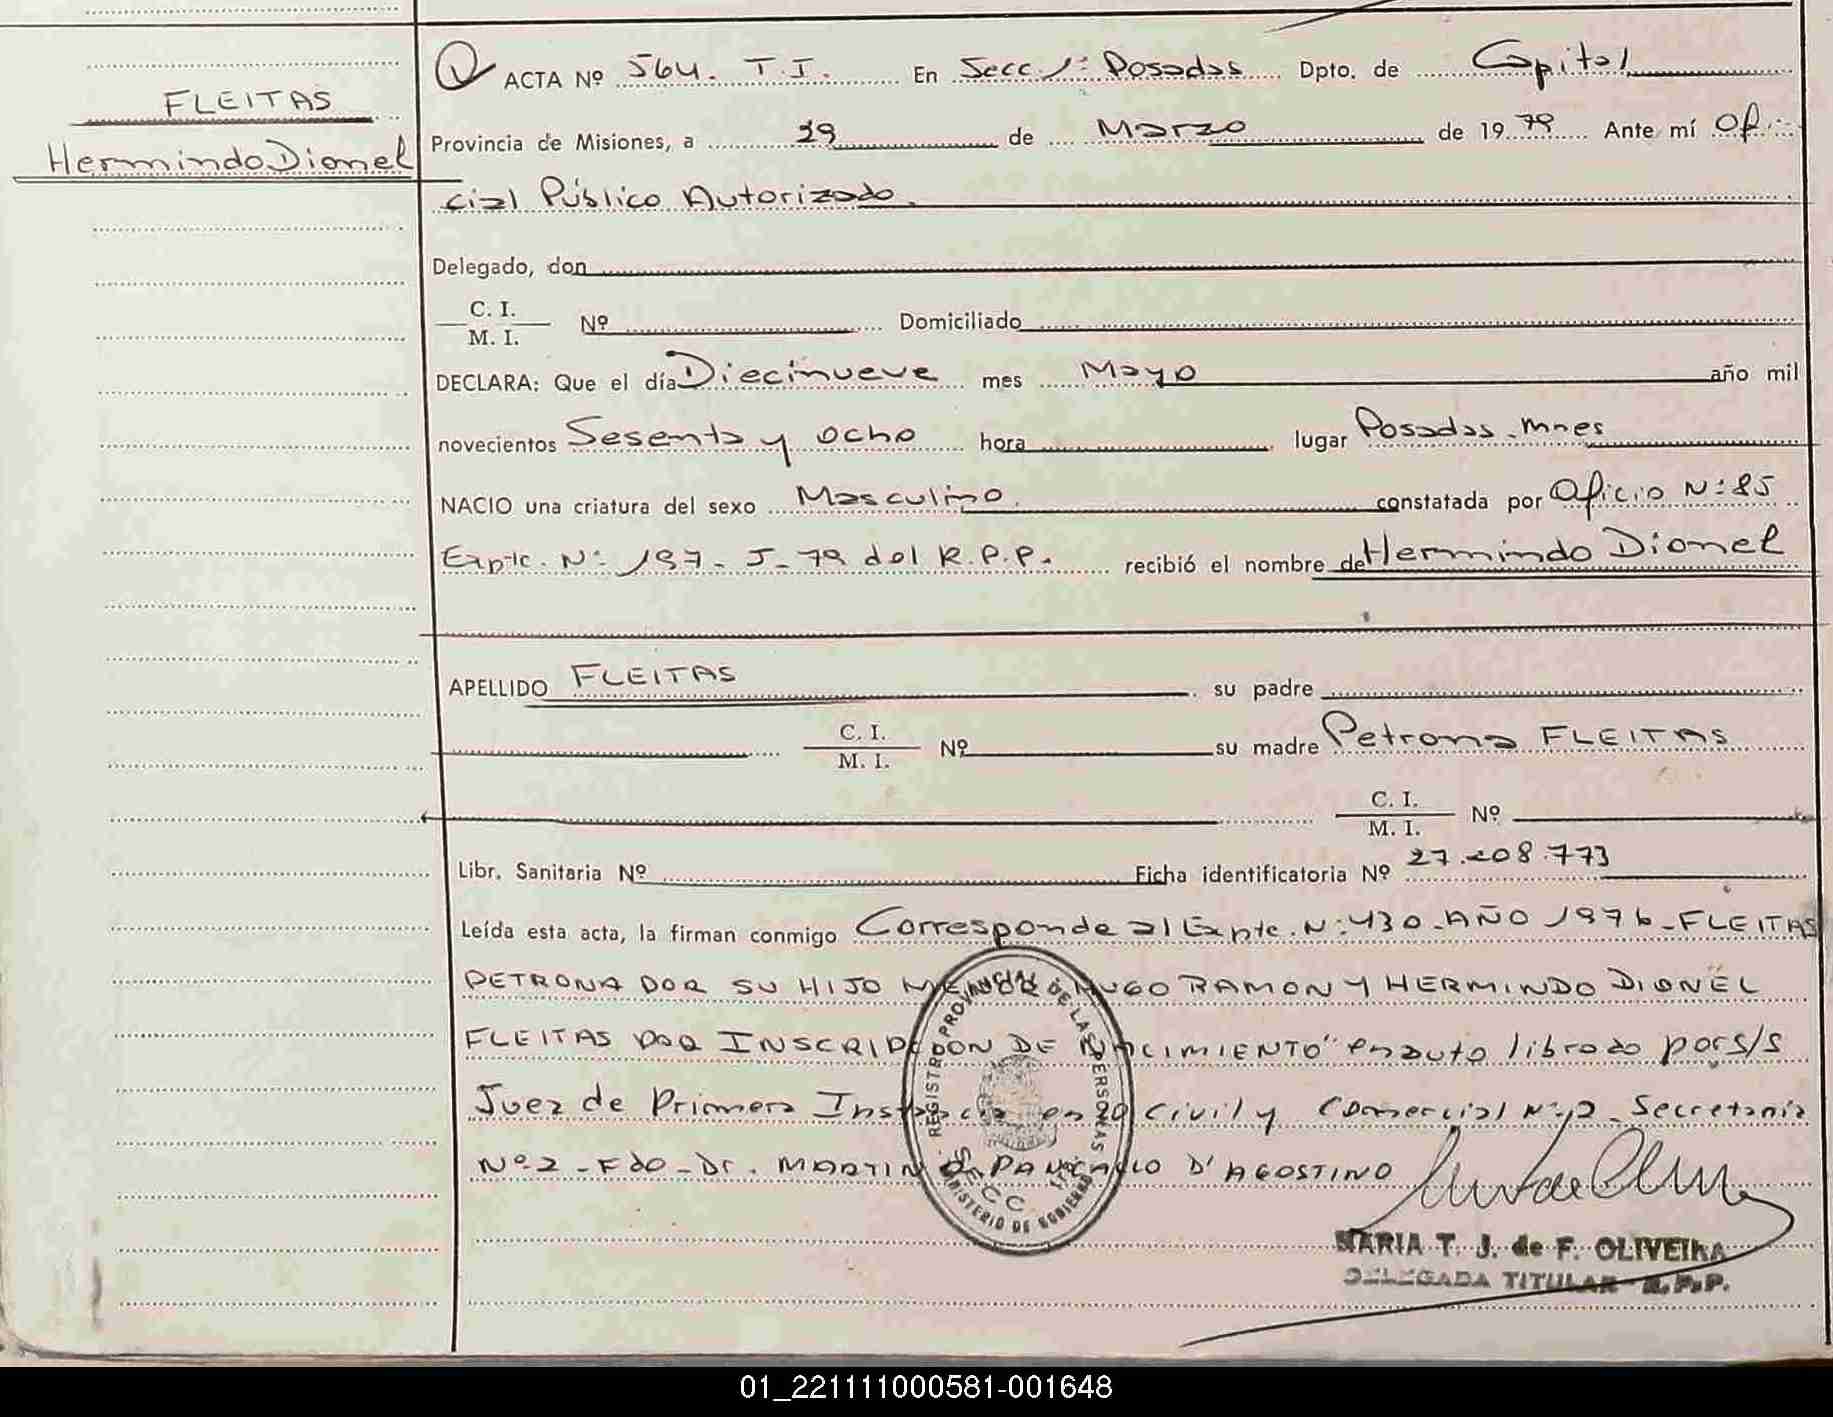 FLEITAS
Hermindo Dionel
ACTA Nº 564. T.I. En Secc. 1ª Posadas Dpto. de Capital
Provincia de Misiones, a 29 de Marzo de 1979 Ante mí Ofi
cial Público Autorizado.
Delegado, don
C. I.
M. I.
Nº Domiciliado
DECLARA: Que el día Diecinueve mes Mayo año mil
novecientos Sesenta y ocho hora lugar Posadas - Mnes
NACIO una criatura del sexo Masculino. constatada por Oficio N: 85
Expte. N: 197 - J - 79 del R.P.P. recibió el nombre de Hermindo Dionel
APELLIDO FLEITAS su padre
C. I.
M. I.
Nº su madre Petrona FLEITAS
C. I.
M. I.
Nº
Libr. Sanitaria Nº Ficha identificatoria Nº 27.208.773
Leída esta acta, la firman conmigo Corresponde al Expte. N: 430 - AÑO 1976 - FLEITAS
PETRONA POR SU HIJO MENOR HUGO RAMON Y HERMINDO DIONEL
FLEITAS POR INSCRIPCION DE NACIMIENTO" en auto librado por s/s
Juez de Primera Instancia en lo Civil y Comercial Nº 2 - Secretaria
Nº 2 - Fdo - Dr. MARTIN PANCRACIO D'AGOSTINO
REGISTRO PROVINCIAL DE LAS PERSONAS
SECC. 1ra.
MINISTERIO DE GOBIERNO
MARIA T. J. de F. OLIVEIRA
DELEGADA TITULAR - R.P.P.
01_221111000581-001648